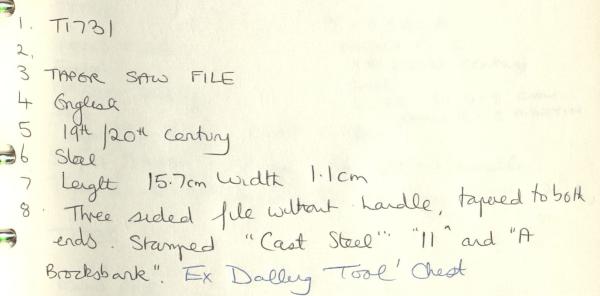 1. T1731
2.
3 TAPER SAW FILE
4 English
5 19th/20th Century
6 Steel
7 Lenght 15.7cm Width 1.1cm
8. Three sided file without handle, tapered to both
ends. Stamped "Cast Steel" "11" and "A
Brocksbank". Ex Tool Chest